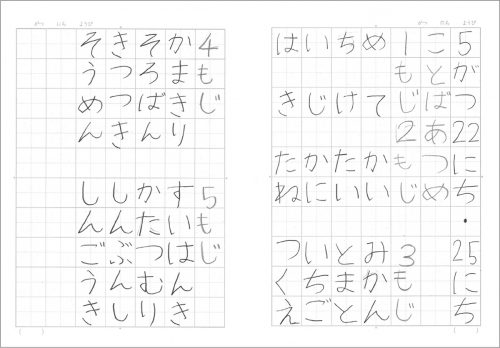 がつ にち ようび
5がつ22にち・25にち
ことばあつめ
1もじ 2もじ 3もじ
め て かい みかん
ち け たい とまと
い じ かに いちご
は き たね つくえ
がつ にち ようび
4もじ 5もじ
かまきり すいはんき
そろばん かたつむり
きつつき しんぶんし
そうめん しんごうき